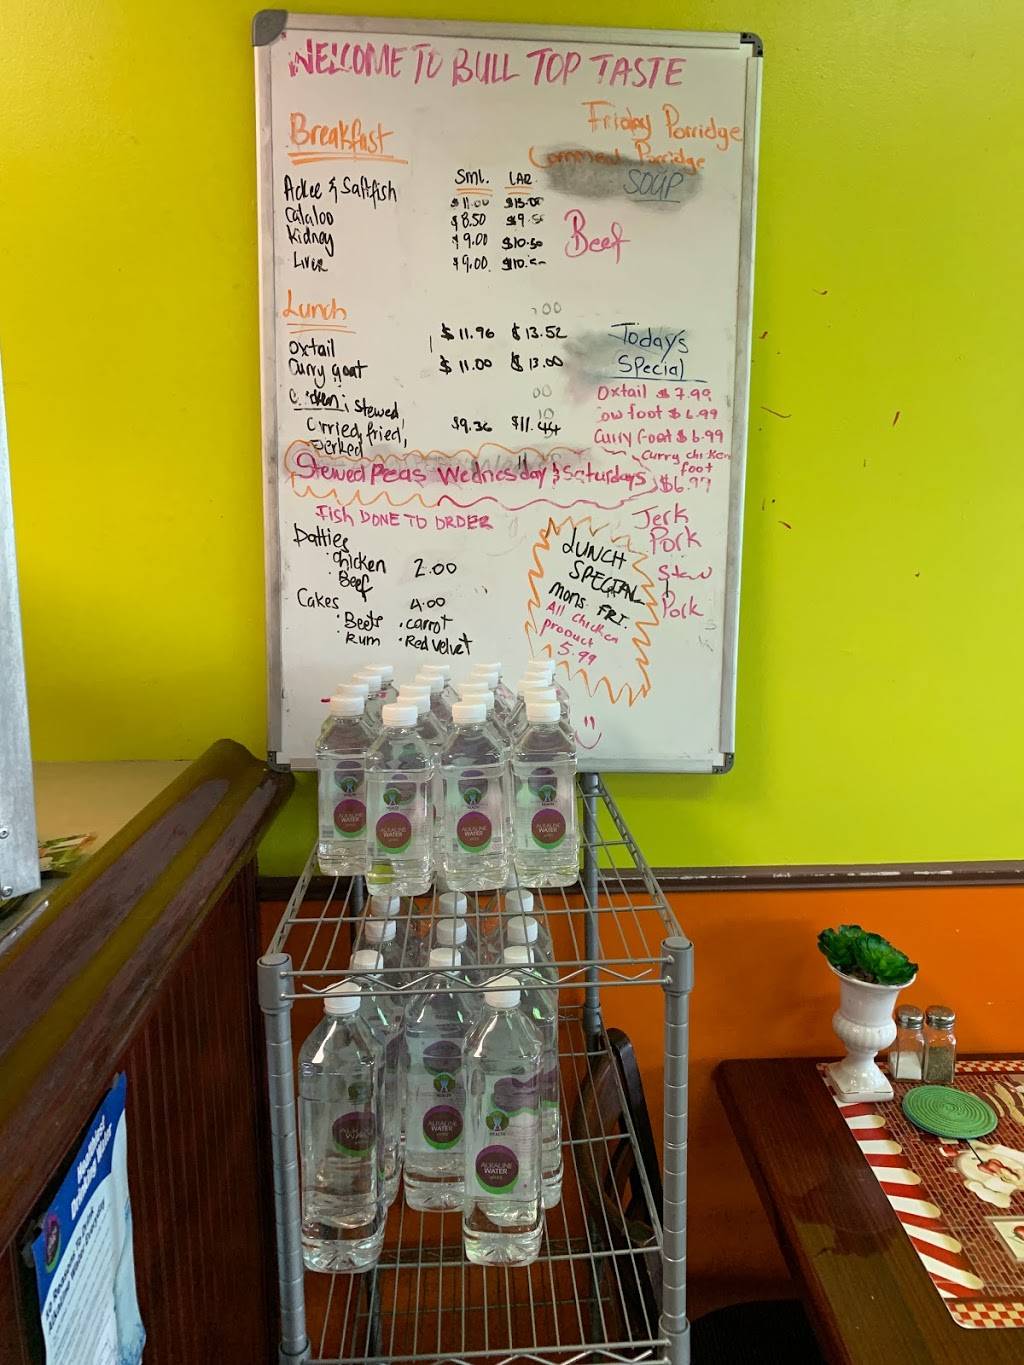 WELCOME TO BULL TOP TASTE
Breakfast
SML. LAR
Ackee & Saltfish $11.00 $13.00
Calaloo $8.50 $9.50
Kidney $9.00 $10.50
Liver $9.00 $10.
Friday Porridge
Cornmeal Porridge
SOUP
Beef
Lunch
Oxtail $11.96 $13.52
Curry goat $11.00 $13.00
Chicken: Stewed
Curried, fried, $9.36 $11.44
Jerked
Stewed Peas Wednesday & Saturdays
Fish DONE TO ORDER
Patties
• Chicken 2.00
• Beef
Cakes 4.00
• Beets • carrot
• Rum • Red Velvet
Today's
Special
Oxtail $7.99
Cow foot $6.99
Curry Goat $6.99
Curry chicken
foot
$6.99
Jerk
Pork
Stew
Pork
LUNCH
SPECIAL
MONS FRI.
All Chicken
product
5.99
ALKALINE
WATER
ALKALINE
WATER
ALKALINE
WATER
ALKALINE
WATER
ALKALINE
WATER
HEALTH
ALKALINE
WATER
Healthiest
Drinking Water